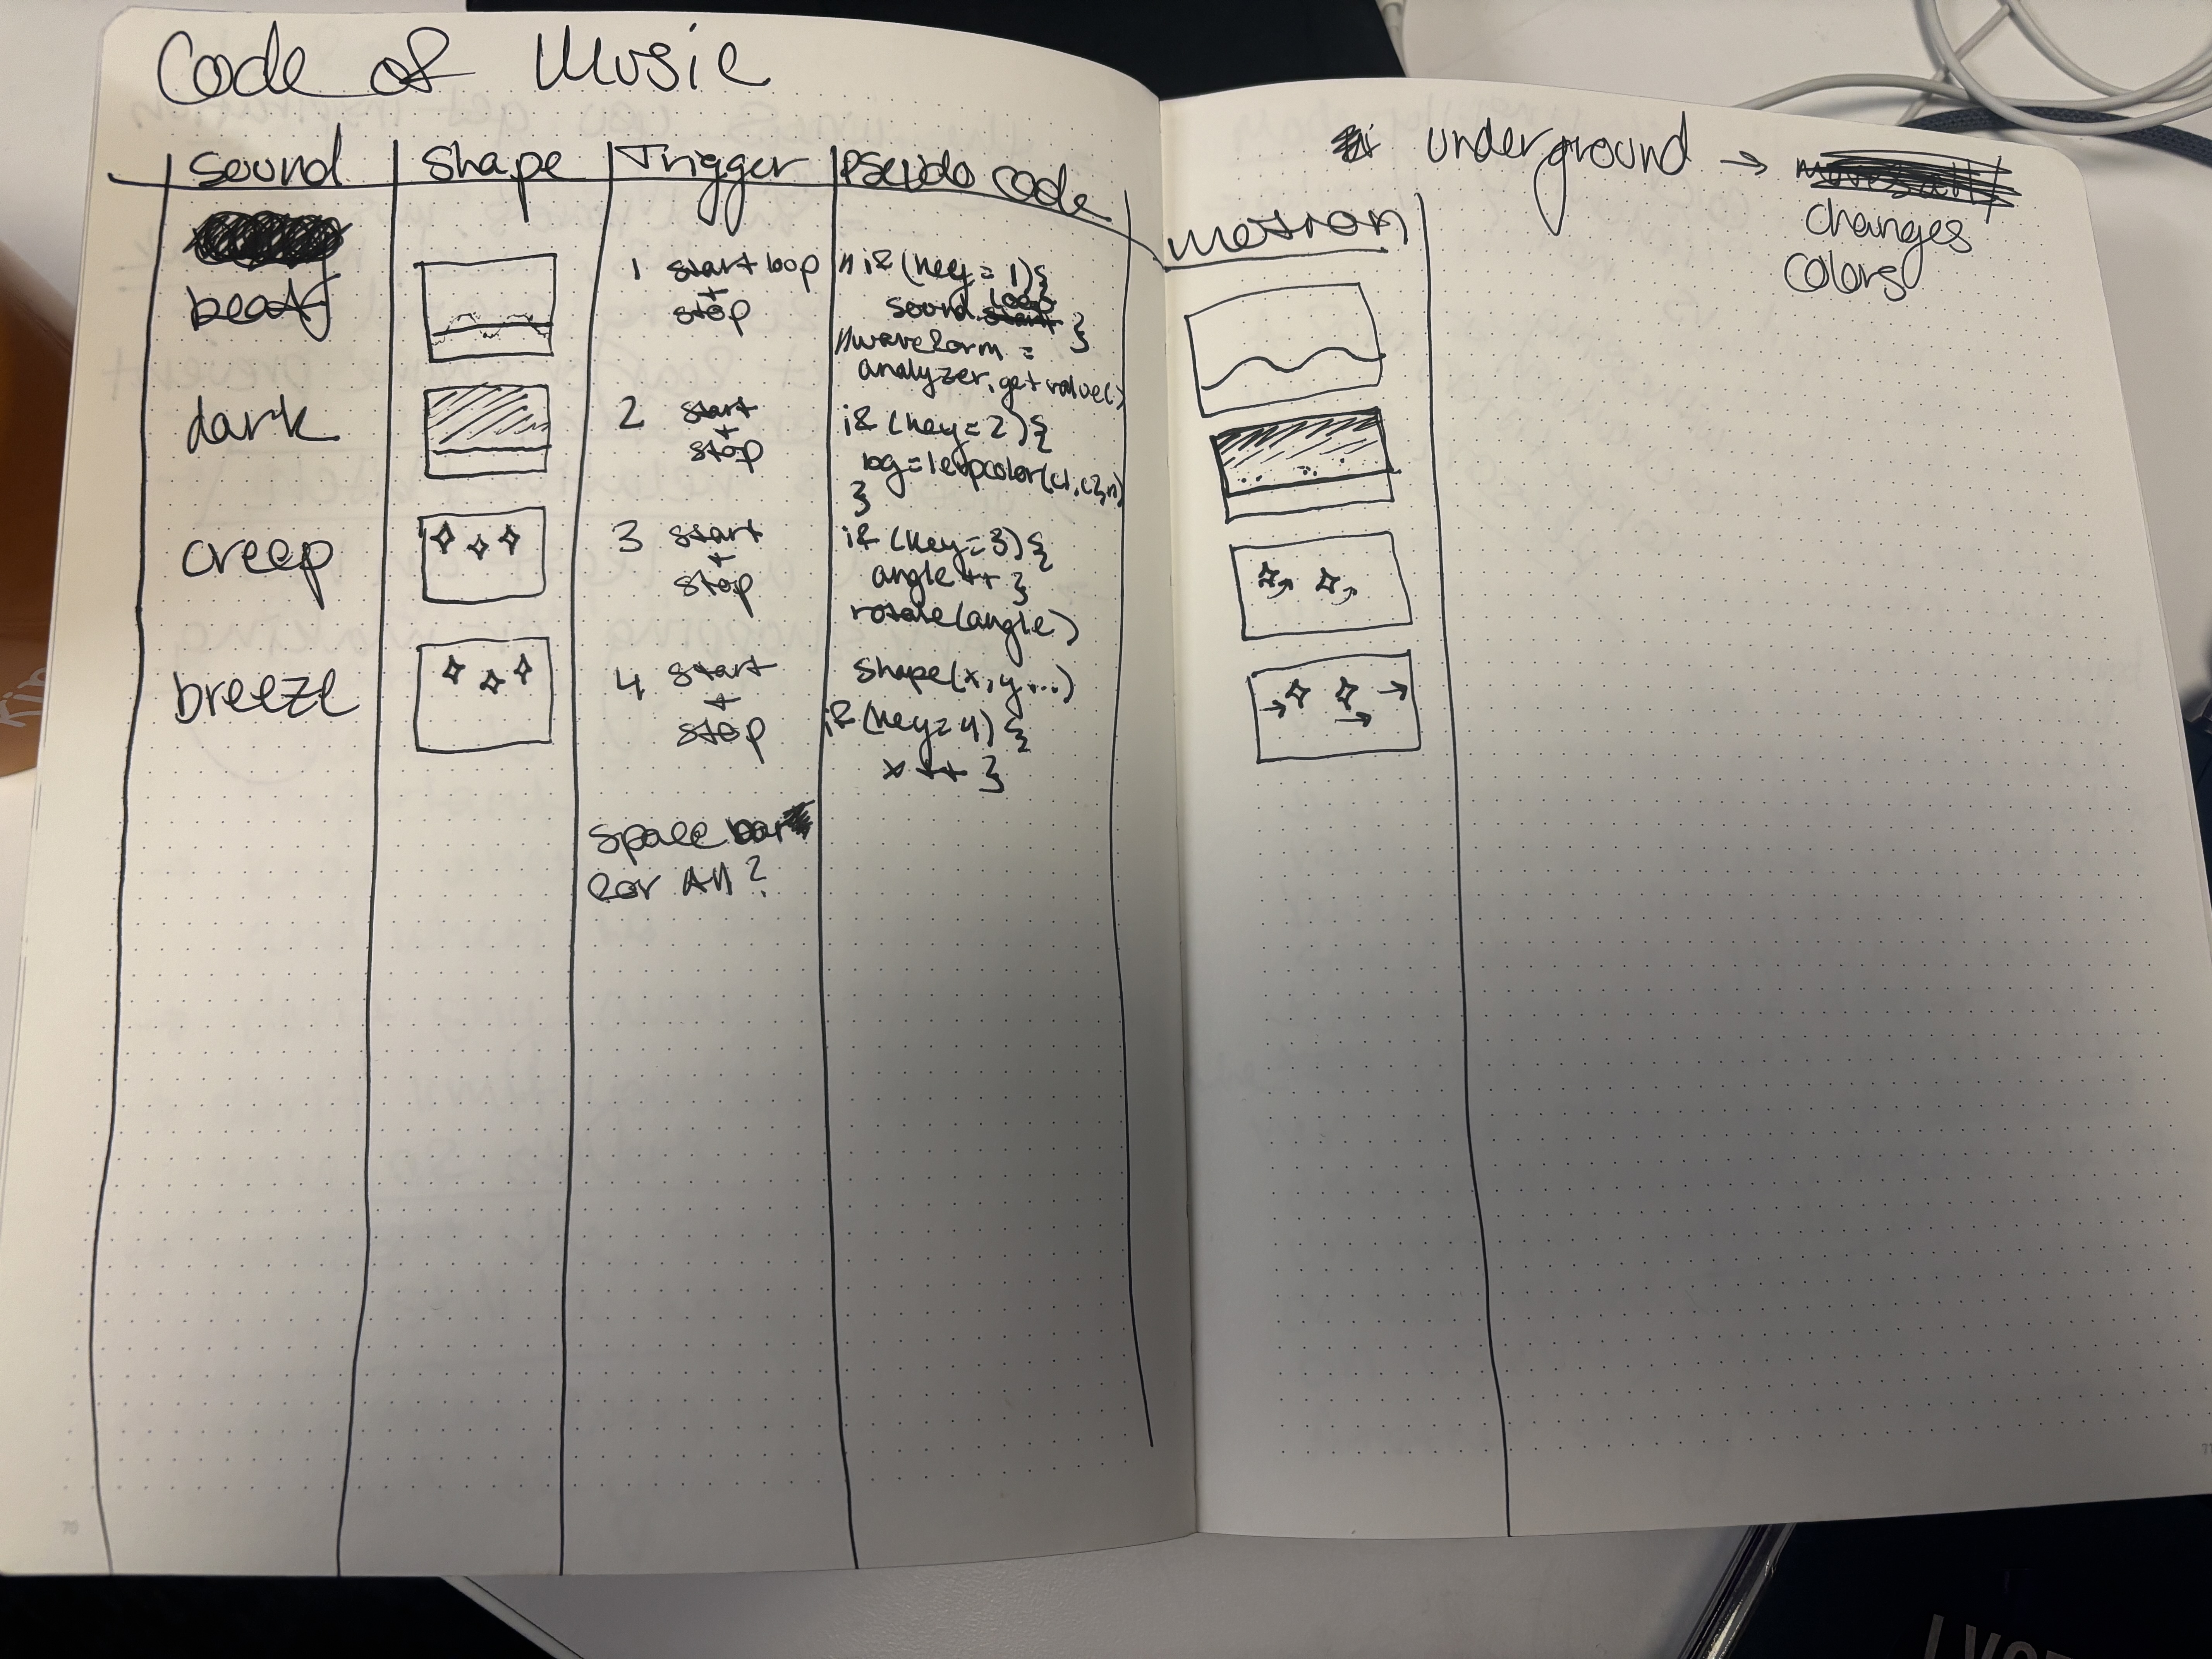 Code of Music
sound | shape | Trigger | Pseudo code
beat
1 start loop
+
stop
// if (key = 1) {
sound. loop start }
// waveform =
analyzer.getvalue()
dark
2 start
+
stop
if (key = 2) {
bg = lerpcolor(c1, c2, n)
}
creep
3 start
+
stop
if (key = 3) {
angle ++ }
rotate(angle)
breeze
4 start
+
stop
shape(x, y ...)
if (key = 4) {
x ++ }
space bar
for All?
underground →
changes
colors
motion
70